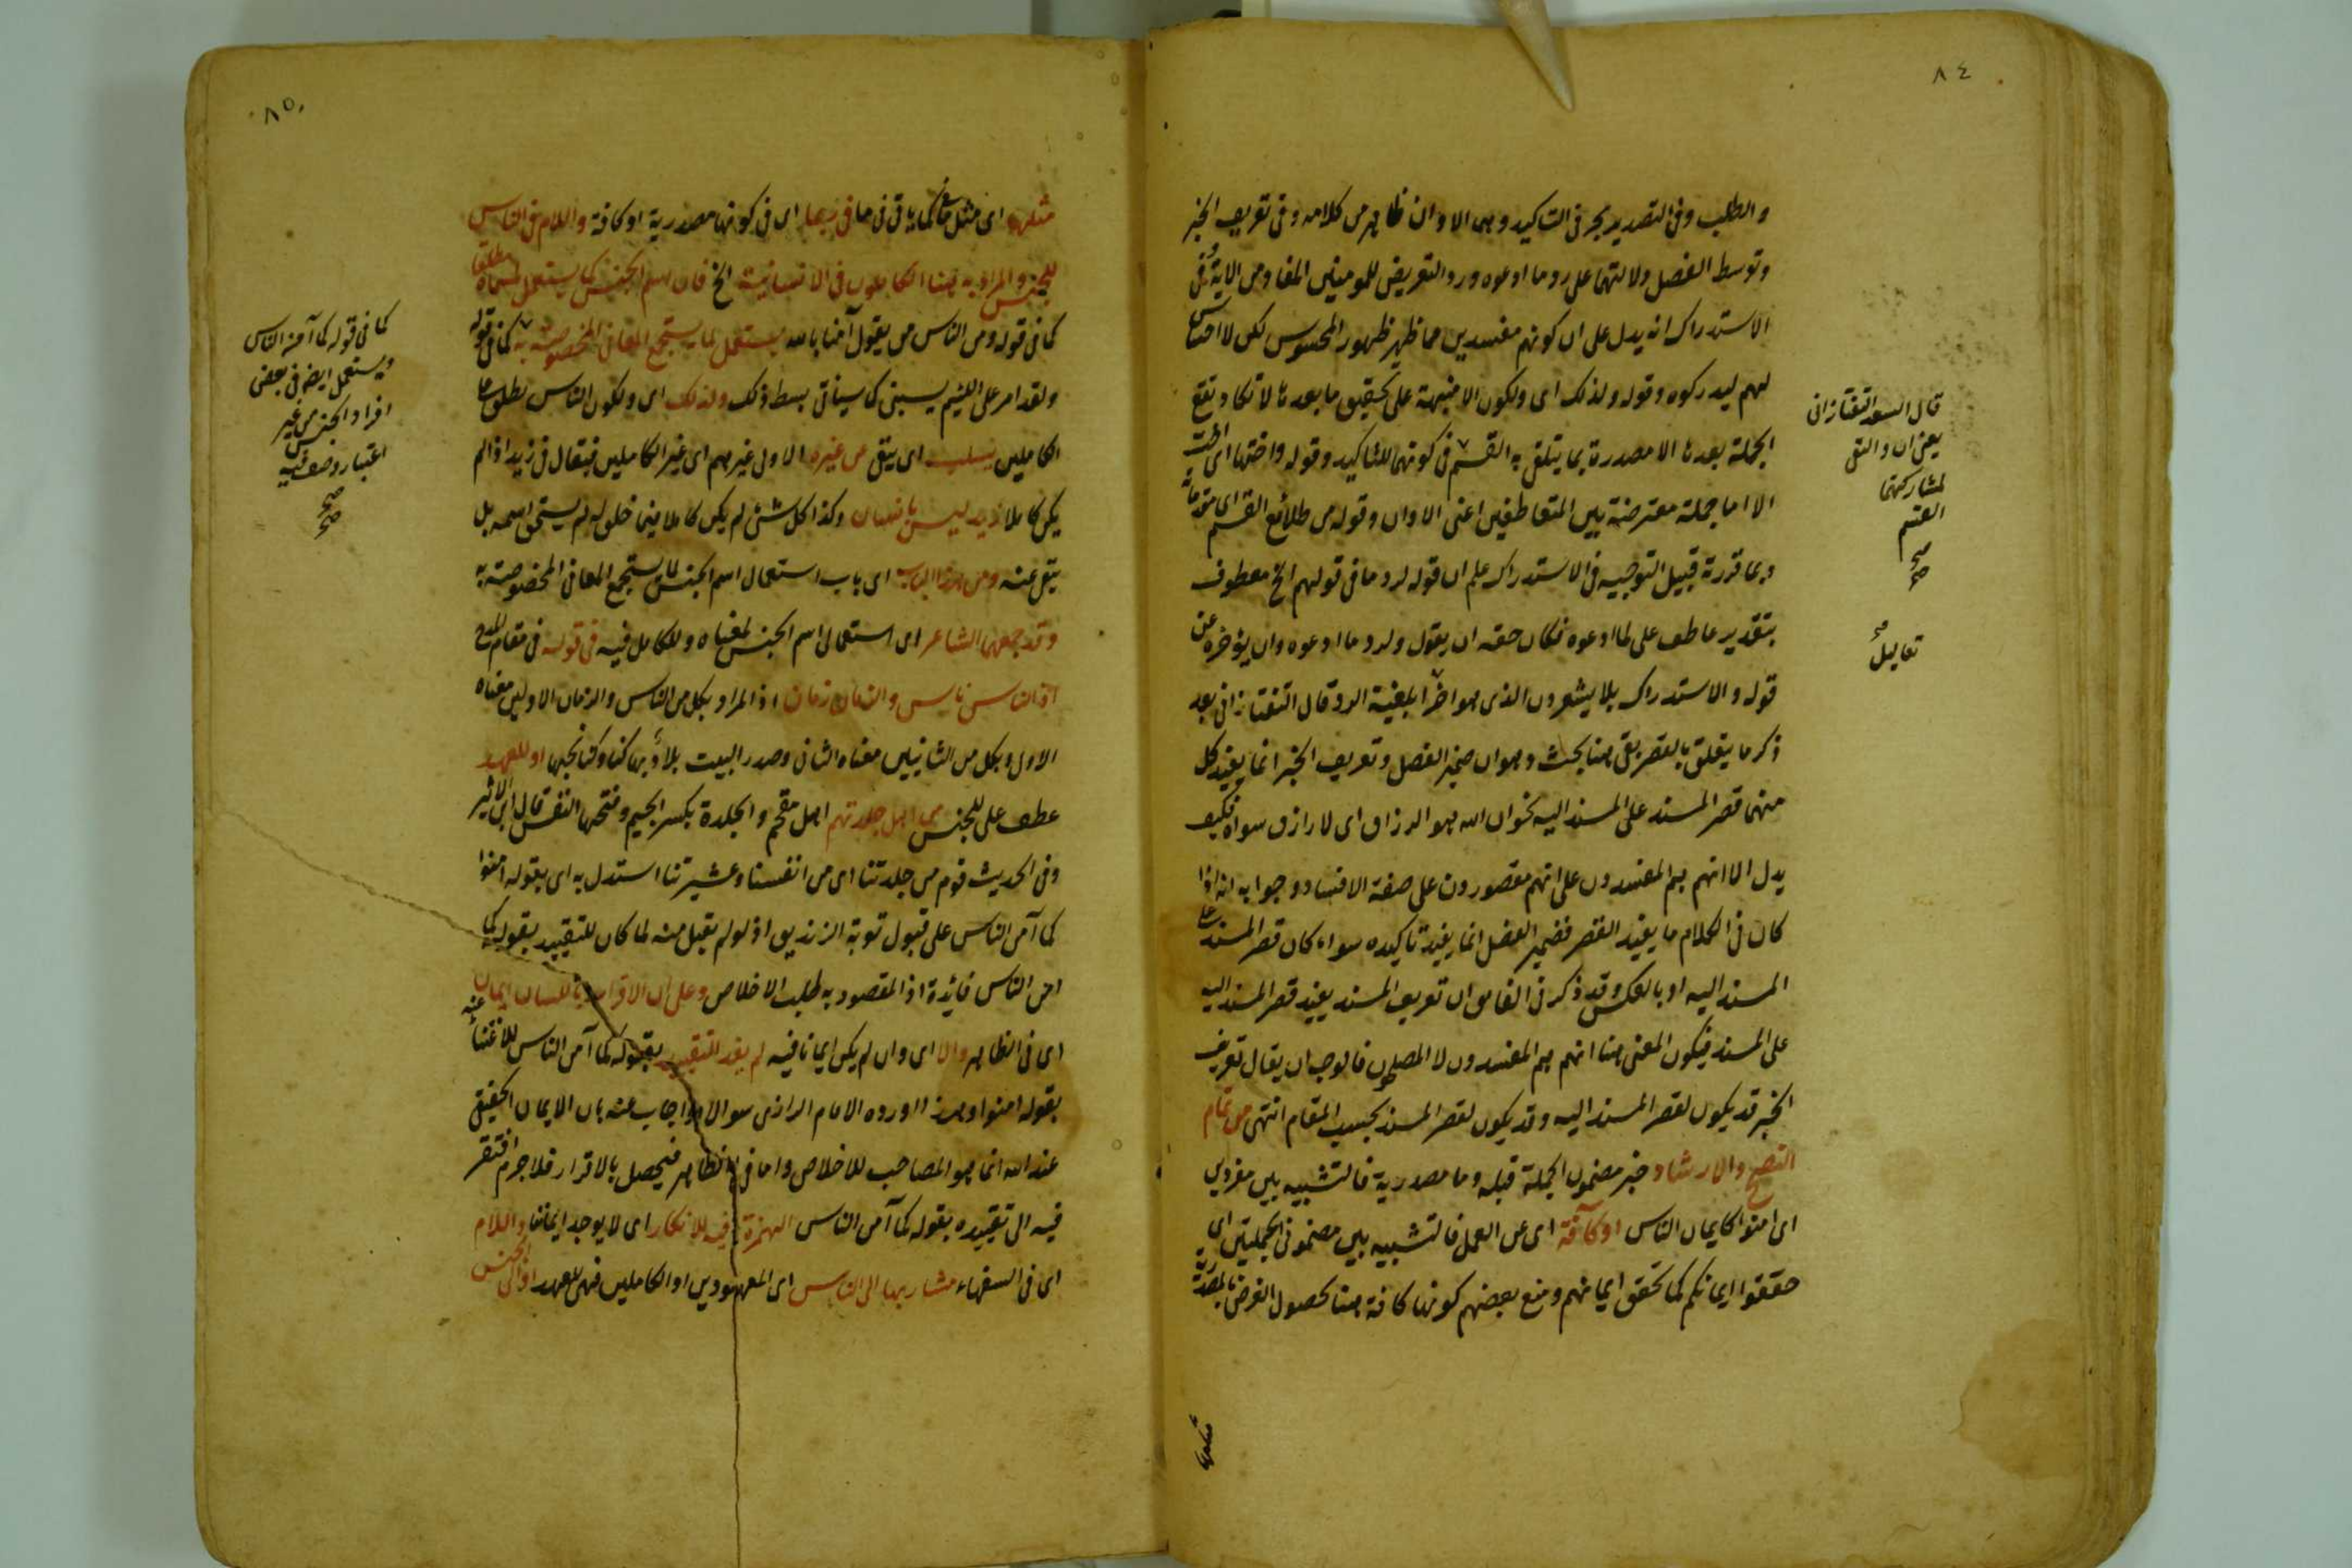 ٨٤
والطلب وفى التصدير بحرفى التاكيد وهى الا وان ظاهر من كلامه وفى تعريف الخبر
وتوسط الفصل ولالتهما على رد ما ادعوه ورد التعريض للمومنين المفاد من الاية وفى
الاستدراك انه يدل على ان كونهم مفسدين مما ظهر ظهور المحسوس لكن لا احساس
لهم ليدركوه وقوله ولذلك اى ولكون الا منبهة على تحقيق ما بعدها لا تكاد تقع
الجملة بعدها الا مصدرة بما يتلقى به القسم فى كونها للتاكيد وقوله واختها اى اخت
الا اما جملة معترضة بين المتعاطفين اعنى الا وان وقوله من طلائع القسم اى مقدماته
وبما قررته قبيل التوجيه فى الاستدراك علم ان قوله لرد ما فى قولهم الخ معطوف
بتقدير عاطف على لما ادعوه فكان حقه ان يقول ولرد ما ادعوه وان يؤخره عن
قوله والاستدراك بلا يشعرون الذى هو اخر ابلغية الرد قال التفتازانى بعد
ذكر ما يتعلق بالقصر بقى هنا بحث وهو ان ضمير الفصل وتعريف الخبر انما يفيد كل
منهما قصر المسند على المسند اليه نحو ان الله هو الرزاق اى لا رازق سواه فكيف
يدل الا انهم هم المفسدون على انهم مقصورون على صفة الافساد وجوابه انه اذا
كان فى الكلام ما يفيد القصر فضمير الفصل انما يفيد تاكيده سواء كان قصر المسند على
المسند اليه او بالعكس وقد ذكر فى الفائق ان تعريف المسند يفيد قصر المسند اليه
على المسند فيكون المعنى هنا انهم هم المفسدون لا المصلحون فالوجه ان يقال تعريف
الخبر قد يكون لقصر المسند اليه وقد يكون لقصر المسند بحسب المقام انتهى من تمام
النصح والارشاد خبر مضمون الجملة قبله وما مصدرية فالتشبيه بين مفردين
اى امنوا كايمان الناس او كآفة اى عن العمل فالتشبيه بين مضمونى الجملتين اى
حققوا ايمانكم كما تحقق ايمانهم ومنع بعضهم كونها كافة هنا لحصول الغرض بالمصدرية
قال السعد التفتازانى
يعنى ان والنفى
لمشاركتها
القسم
صح
صح
مثلها
٨٥
مثلها اى مثل ما كما ياتى فى ما فى ربما اى فى كونها مصدرية او كافة واللام فى الناس
للجنس والمراد به هنا الكاملون فى الانسانية الخ فان اسم الجنس كما يستعمل لمسماه مطلقا
كما فى قوله ومن الناس من يقول آمنا بالله يستعمل لما يستجمع المعانى المخصوصة به كما فى قوله
ولقد امر على اللئيم يسبنى كما سياتى بسط ذلك ولذلك اى ولكون الناس يطلق على
الكاملين يسلب اى ينفى عن غيره الاولى غيرهم اى غير الكاملين فيقال فى زيد اذا لم
يكن كاملا زيد ليس بانسان وكذا كل شئ لم يكن كاملا فيما خلق له لم يستحق اسمه بل
ينفى عنه ومن هذا الباب اى باب استعمال اسم الجنس لما يستجمع المعانى المخصوصة به
وقد جمعهما الشاعر اى استعمال اسم الجنس لمعناه وللكامل فيه فى قوله فى مقام المدح
اذ الناس ناس والزمان زمان اذ المراد بكل من الناس والزمان الاولين معناه
الاول وبكل من الثانيين معناه الثانى وصدر البيت بلاد بها كنا وكنا نحبها او للعهد
عطف على للجنس من اهل جلدتهم اهل مقحم والجلدة بكسر الجيم وفتحها النفس قال ابن الاثير
وفى الحديث قوم من جلدتنا اى من انفسنا وعشيرتنا استدل به اى بقوله امنوا
كما آمن الناس على قبول توبة الزنديق اذ لو لم يقبل منه لما كان للتقييد بقوله كما
امن الناس فائدة اذ المقصود به طلب الاخلاص وعلى ان الاقرار باللسان ايمان
اى فى الظاهر والا اى وان لم يكن ايمانا فيه لم يفد التقييد بقوله كما آمن الناس للاغتناء عنه
بقوله امنوا وهذا اورده الامام الرازى سوالا واجاب عنه بان الايمان الحقيقى
عند الله انما هو المصاحب للاخلاص واما فى الظاهر فيحصل بالاقرار فلا جرم افتقر
فيه الى تقييده بقوله كما آمن الناس الهمزة فيه للانكار اى لا يوجد ايماننا واللام
اى فى السفهاء مشار بها الى الناس اى المعهودين او الكاملين فهى للعهد او الى الجنس
كما فى قوله كما آمن الناس
ويستعمل ايضا فى بعض
افراد الجنس من غير
اعتبار وصف فيه
صح
صح